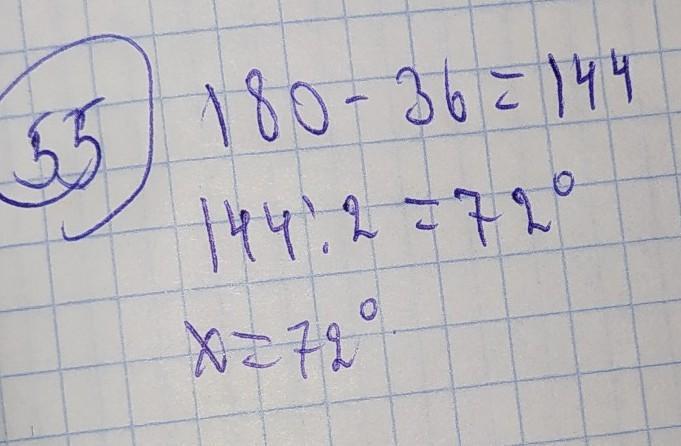 55
180 - 36 = 144
144 : 2 = 72°
x = 72°